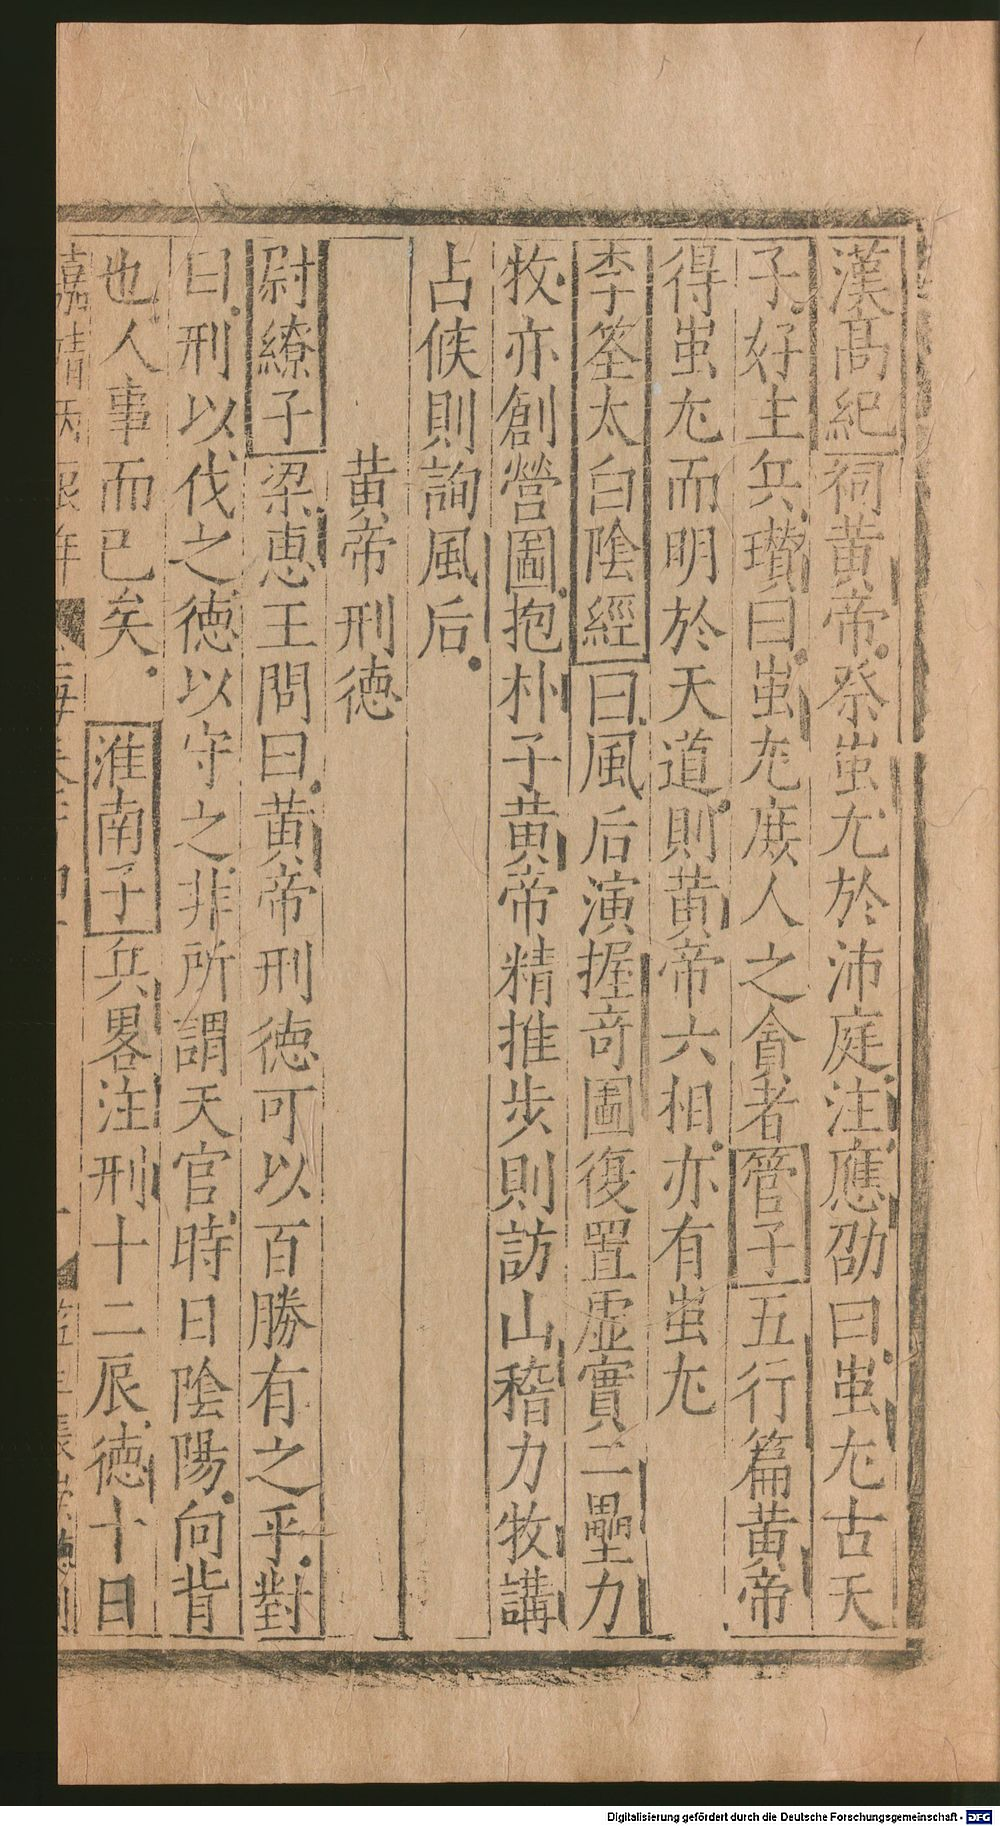 漢高紀祠黄帝祭蚩尤於沛庭注應劭曰蚩尤古天
子好主兵瓚曰蚩尤庶人之貪者管子五行篇黄帝
得蚩尤而明於天道則黄帝六相亦有蚩尤
李筌太白陰經曰風后演握竒圖復置虚實二壘力
牧亦創營圖抱朴子黄帝精推步則訪山稽力牧講
占候則詢風后
黄帝刑德
尉繚子梁恵王問曰黄帝刑徳可以百勝有之乎對
曰刑以伐之徳以守之非所謂天官時日陰陽向背
也人事而已矣淮南子兵畧注刑十二辰徳十日
嘉靖丙辰年
Digitalisierung gefördert durch die Deutsche Forschungsgemeinschaft - DFG